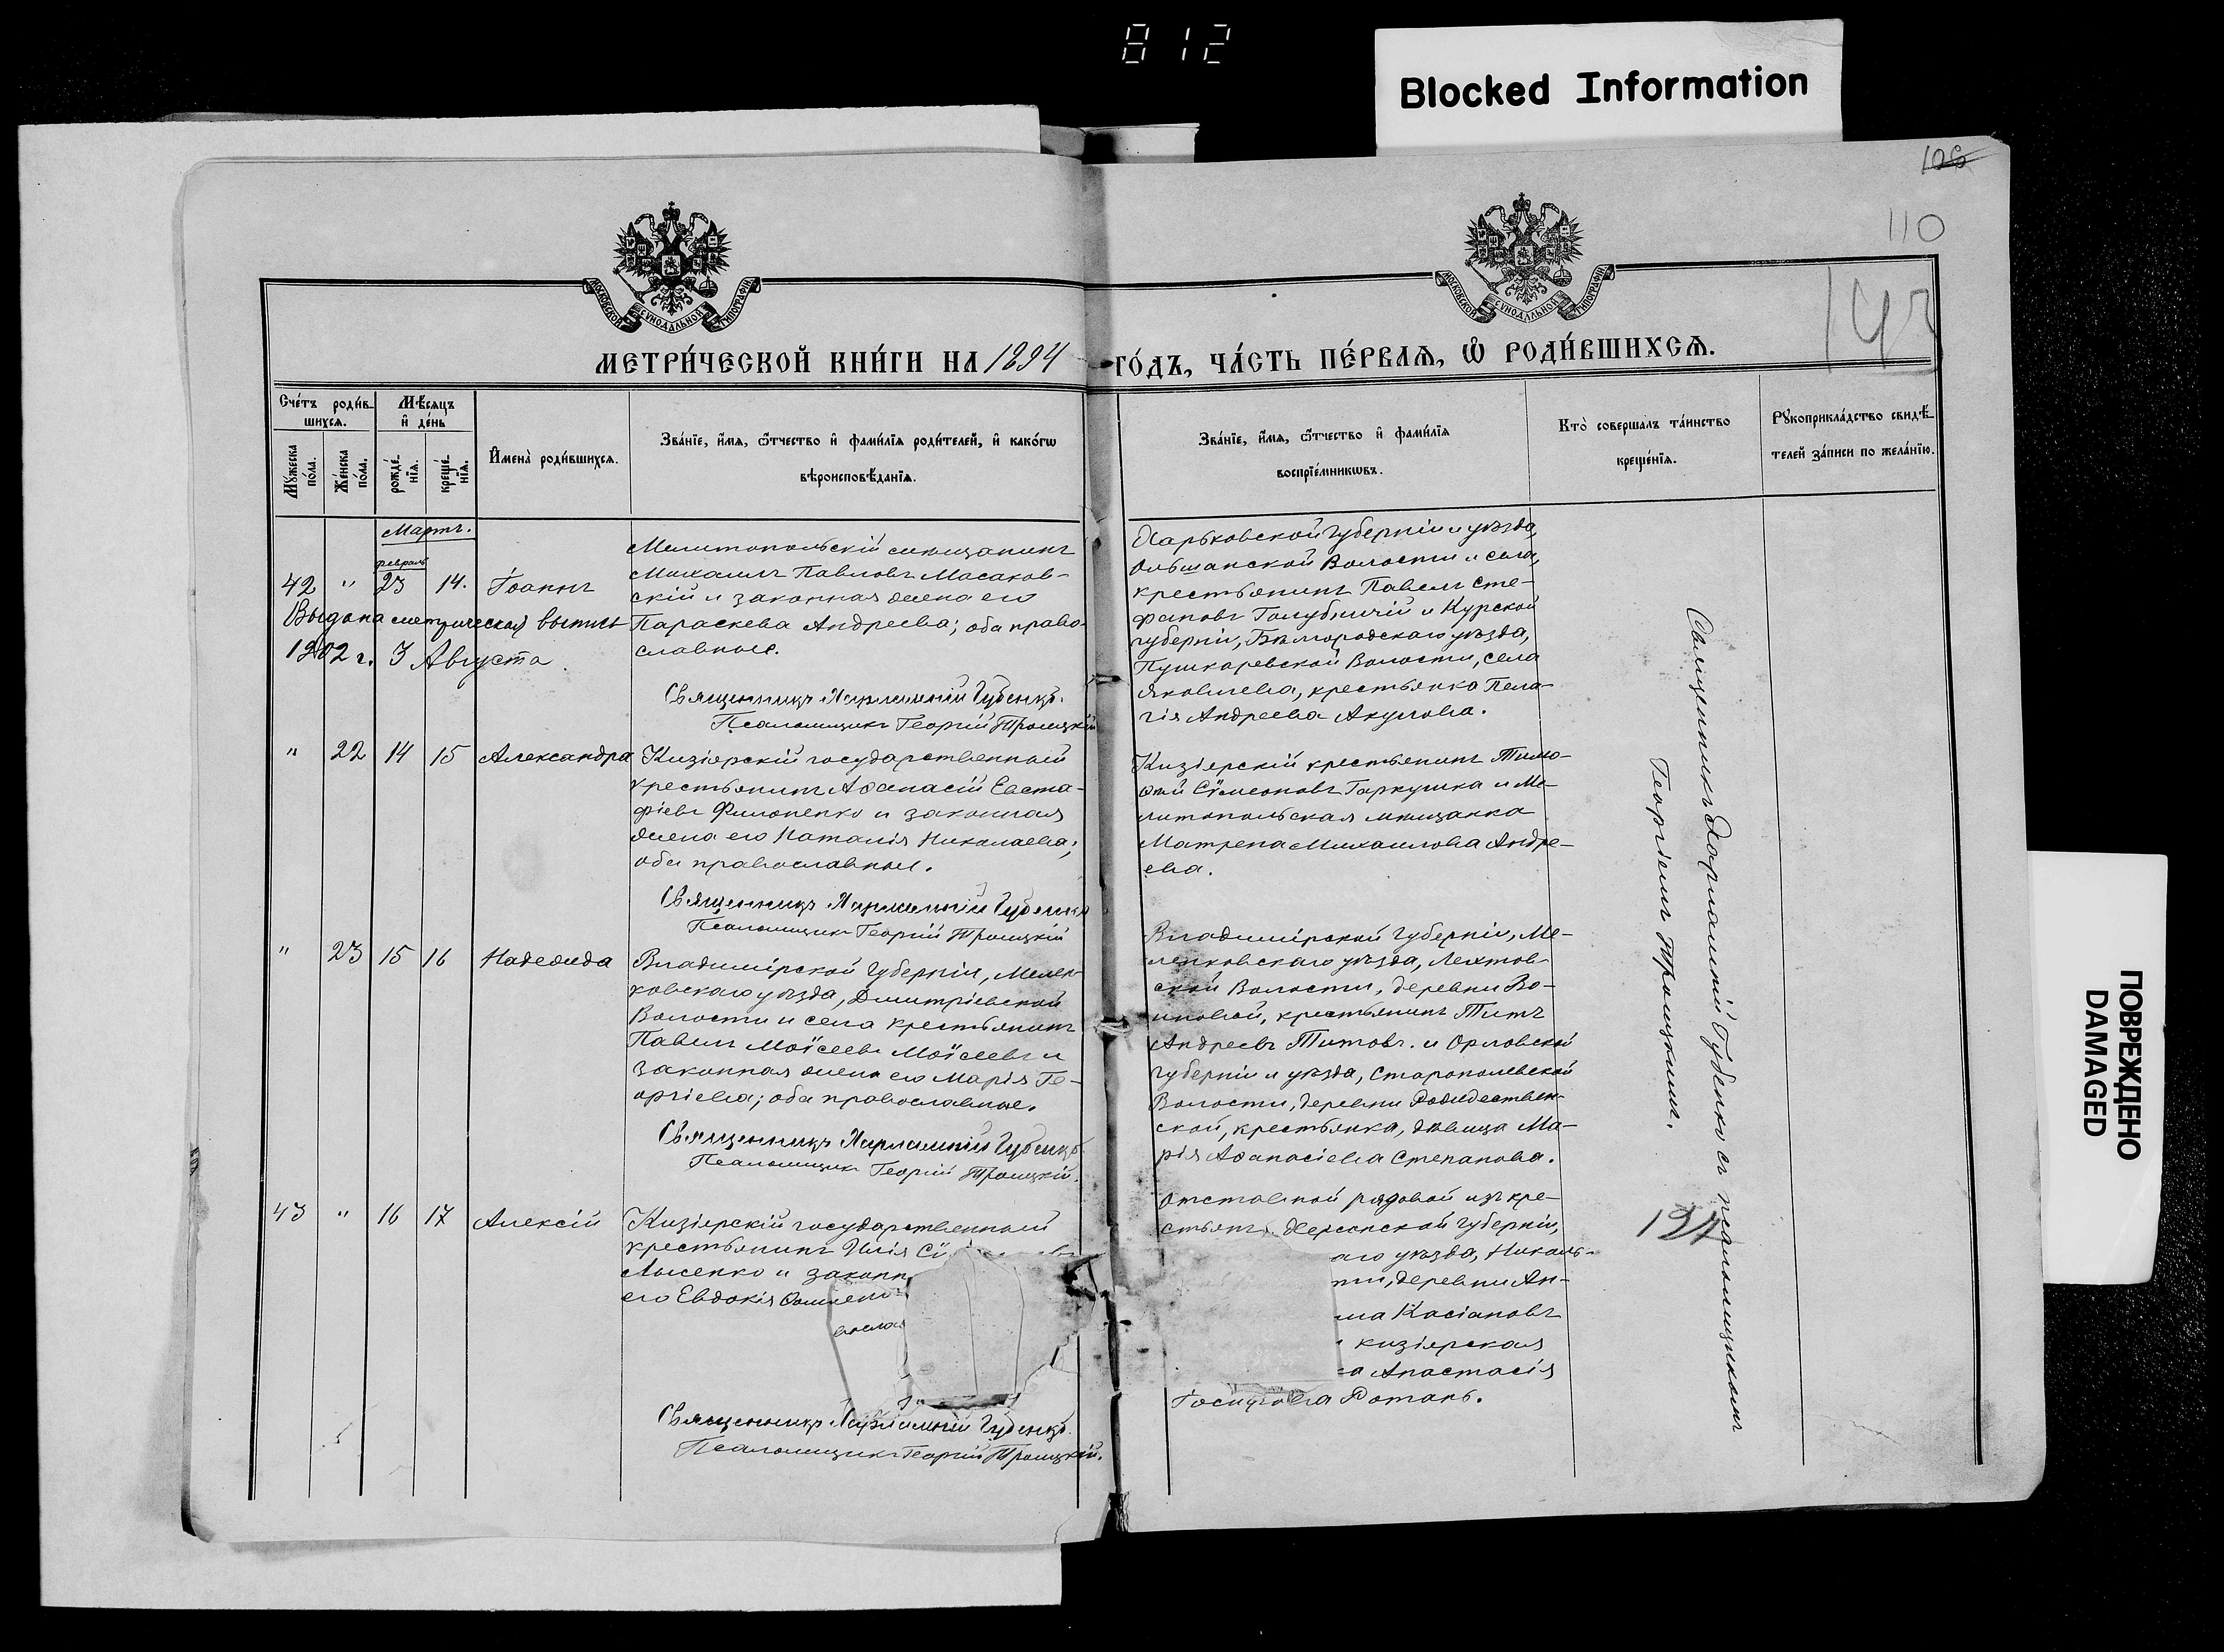 812
Blocked Information
106
110
МОСКОВСКОЙ СѴНОДАЛЬНОЙ ТИПОГРАФІИ
МОСКОВСКОЙ СѴНОДАЛЬНОЙ ТИПОГРАФІИ
МЕТРИ́ЧЕСКОЙ КНИ́ГИ НА 1894 ГО́ДЪ, ЧА́СТЬ ПЕ́РВАЯ, Ѡ РОДИ́ВШИХСЯ.
Сче́тъ роди́в-
шихся.
Мꙋ́жеска по́ла.
Же́нска по́ла.
Мѣ́сяцъ и де́нь
рожде́нїя.
креще́нїя.
И́мена роди́вшихся.
Зва́нїе, и́мя, ѻ́тчество и фами́лїя роди́телей, и како́гѡ
вѣроисповѣ́данїя.
Зва́нїе, и́мя, ѻ́тчество и фами́лїя
воспрїе́мникѡвъ.
Кто̀ соверша́лъ та́инство
креще́нїя.
Рꙋкоприкла́дство свидѣ́-
телей за́писи по жела́нїю.
Мартъ.
февраль
42 " 23 14. Іоаннъ
Выдана метрическая выпись
1902 г. 3 Августа.
Мелитопольскій мѣщанинъ
Михаилъ Павловъ Масаков-
скій и законная жена его
Параскева Андреева; оба право-
славные.
Священникъ Харлампій Губенко.
Псаломщикъ Георгій Троицкій
Харьковской Губерніи и уѣзда,
Ольшанской Волости и села,
крестьянинъ Павелъ Сте-
фановъ Голубничій и Курской
губерніи, Бѣлгородскаго уѣзда,
Пушкаревской Волости, села
Яковлева, крестьянка Пела-
гія Андреева Акулова.
" 22 14 15 Александра
Кизіярскій государственный
крестьянинъ Аѳанасій Евста-
фіевъ Филоненко и законная
жена его Наталія Николаева;
оба православные.
Священникъ Харлампій Губенко
Псаломщикъ Георгій Троицкій
Кизіярскій крестьянинъ Тимо-
ѳей Сѵмеоновъ Гаркушка и Ме-
литопольская мѣщанка
Матрена Михаилова Андре-
ева.
" 23 15 16 Надежда
Владимірской Губерніи, Мелен-
ковскаго уѣзда, Димитріевской
Волости и села крестьянинъ
Павелъ Моѵсеевъ Моѵсеевъ и
законная жена его Марія Ге-
оргіева; оба православные.
Священникъ Харлампій Губенко
Псаломщикъ Георгій Троицкій.
Владимірской Губерніи, Ме-
ленковскаго уѣзда, Лехтов-
ской Волости, деревни Во-
иновой, крестьянинъ Титъ
Андреевъ Титовъ. и Орловской
губерніи и уѣзда, Старополевской
Волости, деревни Рождествен-
ской, крестьянка, дѣвица Ма-
рія Аѳанасіева Степанова.
43 " 16 17 Алексій
Кизіярскій государственный
крестьянинъ Илія Сѵ
Лысенко и законн
его Евдокія
вослав
Священникъ Харлампій Губенко.
Псаломщикъ Георгій Троицкій.
Отставной рядовой изъ кре-
стьянъ Херсонской Губерніи,
аго уѣзда, Николь-
ти, деревни Ан-
ма Касіановъ
кизіярская
ка Анастасія
Іосифова Ротань.
Священникъ Харлампій Губенко съ псаломщикомъ
Георгіемъ Троицкимъ.
ПОВРЕЖДЕНО
DAMAGED